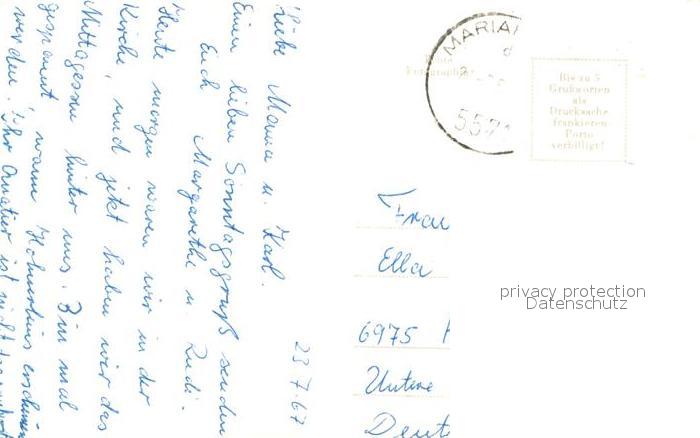 23.7.67
Liebe Mama u. Karl.
Einen lieben Sonntagsgruß senden
Euch Margarethe u. Rudi.
Heute morgen waren wir in der
Kirche, und jetzt haben wir das
Mittagessen hinter uns. Bin mal
gespannt, wann
werden. Ihr Quartier ist nicht
MARIA
557
Bis zu 5
Grußworten
als
Drucksache
frankieren
Porto
verbilligt!
Frau
Ella
6975
Untere
Deut
privacy protection
Datenschutz